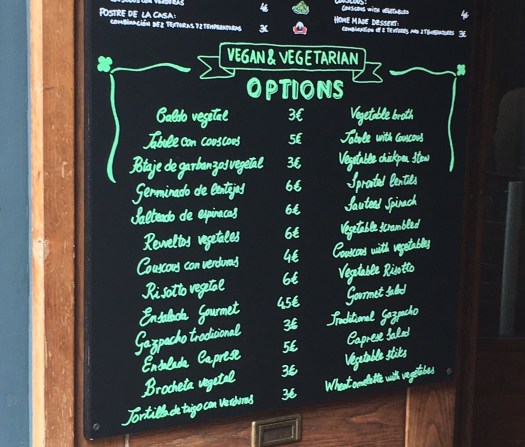 COUSCOUS CON VERDURAS 4€ COUSCOUS:
COUSCOUS WITH VEGETABLES 4€
POSTRE DE LA CASA:
COMBINACIÓN DE 2 TEXTURAS Y 2 TEMPERATURAS 3€
HOME MADE DESSERT:
COMBINATION OF 2 TEXTURES AND 2 TEMPERATURES 3€
VEGAN & VEGETARIAN
OPTIONS
Caldo vegetal 3€ Vegetable broth
Tabule con couscous 5€ Tabule with couscous
Potaje de garbanzos vegetal 3€ Vegetable chickpea stew
Germinado de lentejas 6€ Sprouted lentils
Salteado de espinacas 6€ Sauteed Spinach
Revueltos vegetales 6€ Vegetable scrambled
Couscous con verduras 4€ Couscous with vegetables
Risotto vegetal 6€ Vegetable Risotto
Ensalada Gourmet 4.5€ Gourmet salad
Gazpacho tradicional 3€ Traditional Gazpacho
Ensalada Caprese 5€ Caprese Salad
Brocheta vegetal 3€ Vegetable stiks
Tortilla de trigo con verduras 3€ Wheat omelette with vegetables